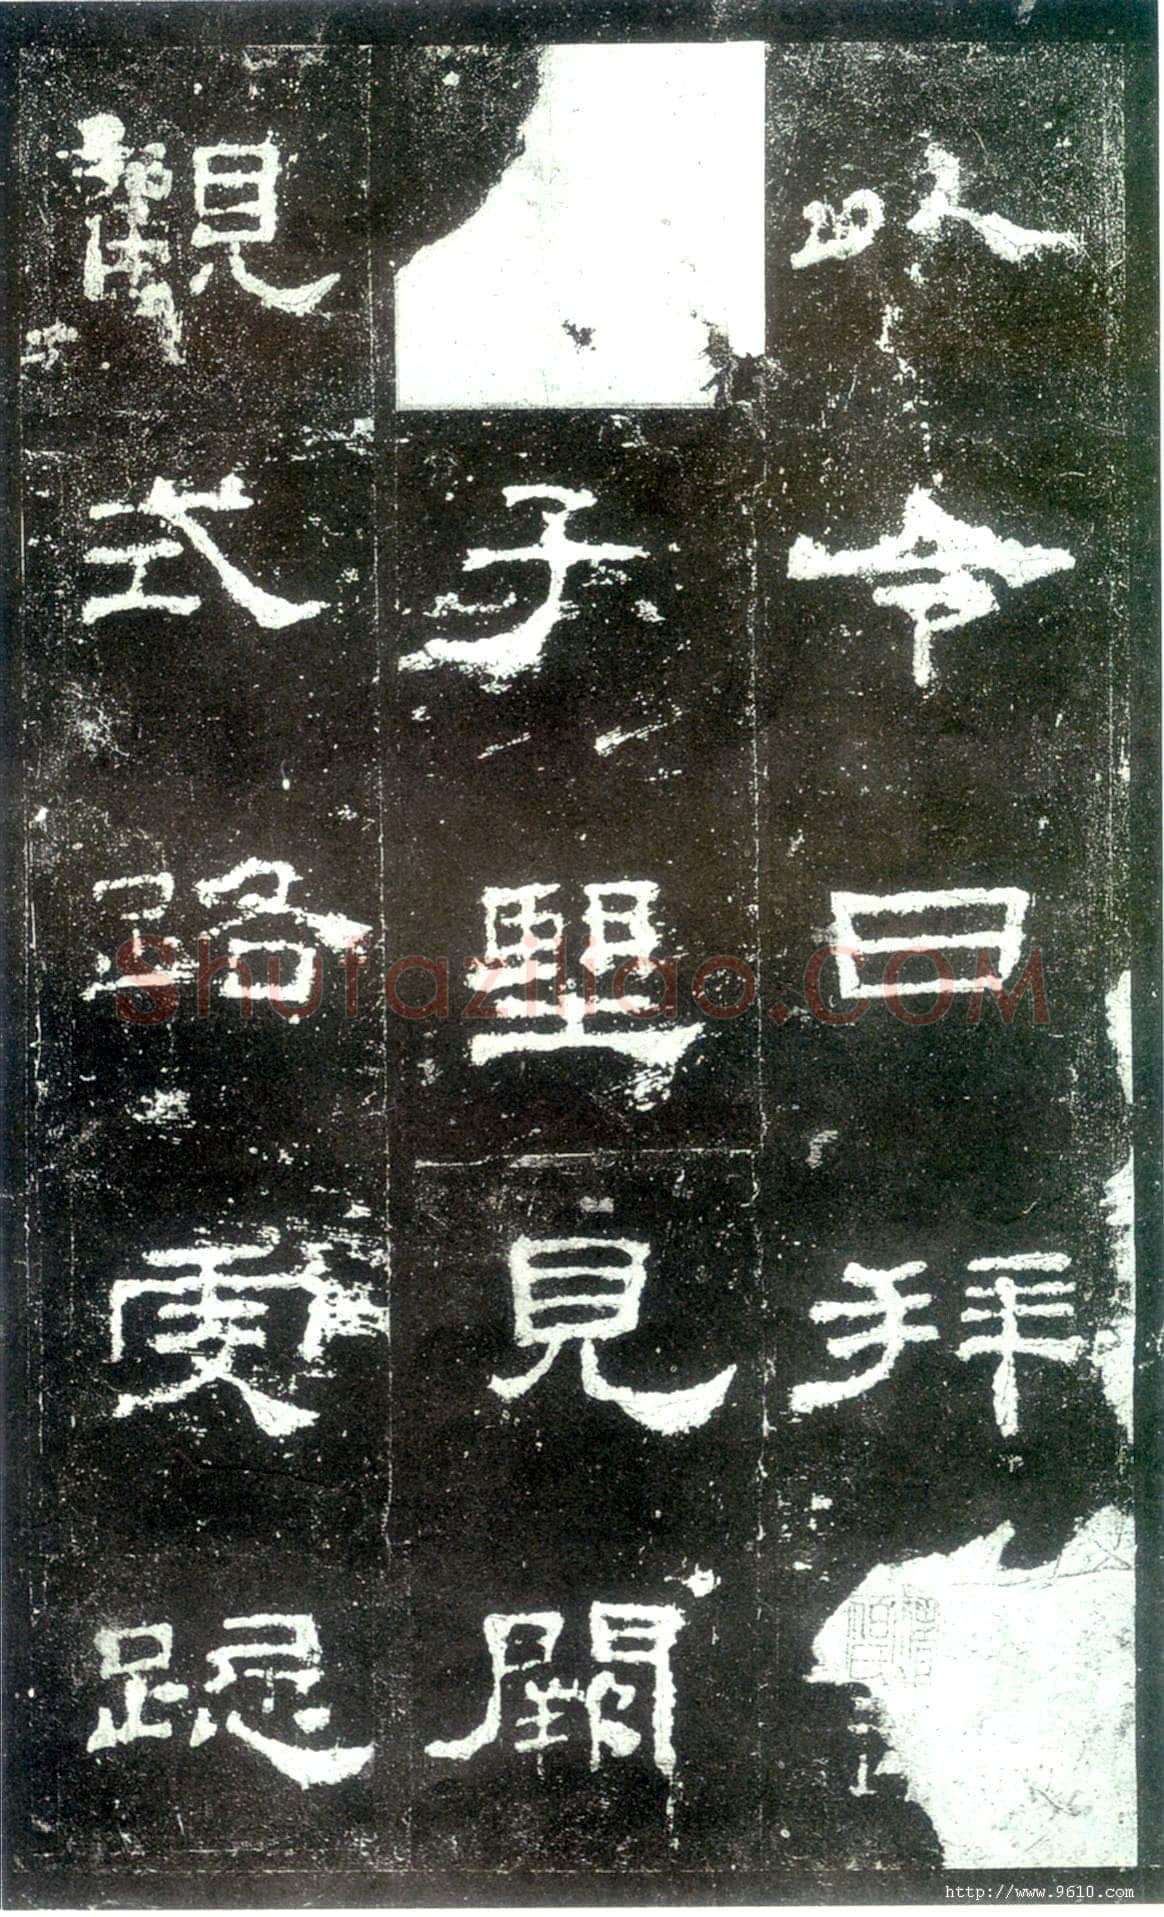 以令日拜
子望見闕
觀式路虔跽
Shufaziliao.COM
http://www.9610.com